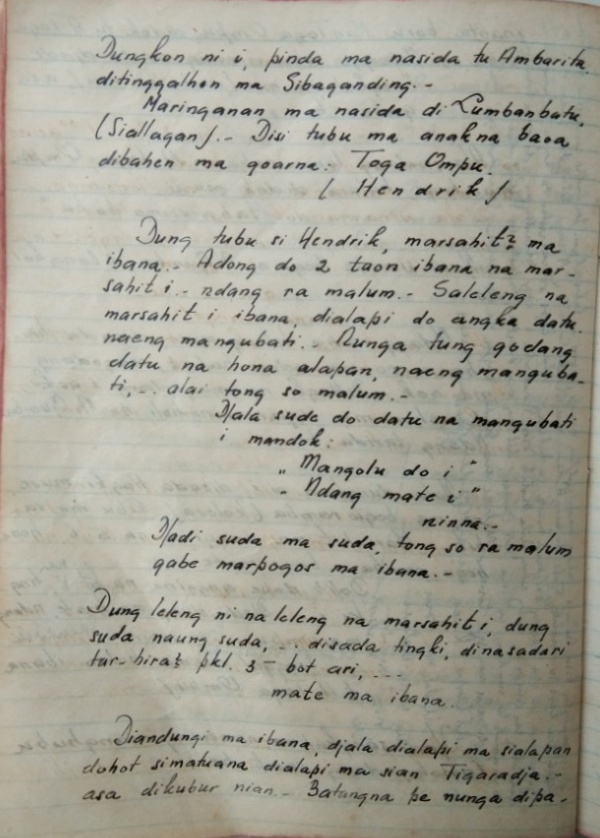 Dungkon ni i, pinda ma nasida tu Ambarita.
ditinggalhon ma Sibaganding.-
Maringanan ma nasida di Lumbanbatu,
(Siallagan).- Disi tubu ma anakna baoa
dibahen ma goarna: Toga Ompu.
( Hendrik )
Dung tubu si Hendrik, marsahit2 ma
ibana.- Adong do 2 taon ibana na mar-
sahit i.- ndang ra malum.- Saleleng na
marsahit i ibana, dialapi do angka datu
naeng mangubati.- Nunga tung godang
datu na hona alapan, naeng manguba-
ti,.. alai tong so malum.-
Djala sude do datu na mangubati
i mandok:
"Mangolu do i"
"Ndang mate i"
ninna.-
Djadi suda ma suda, tong so ra malum
gabe marpogos ma ibana.-
Dung leleng ni na leleng na marsahit i, dung
suda naung suda, ... disada tingki, dinasadari
tar-hira2 pkl. 3 - bot ari, ...
mate ma ibana.
Diandungi ma ibana, djala dialapi ma sialapan
dohot simatuana dialapi ma sian Tigaradja.-
asa dikubur nian.- Batangna pe nunga dipa-